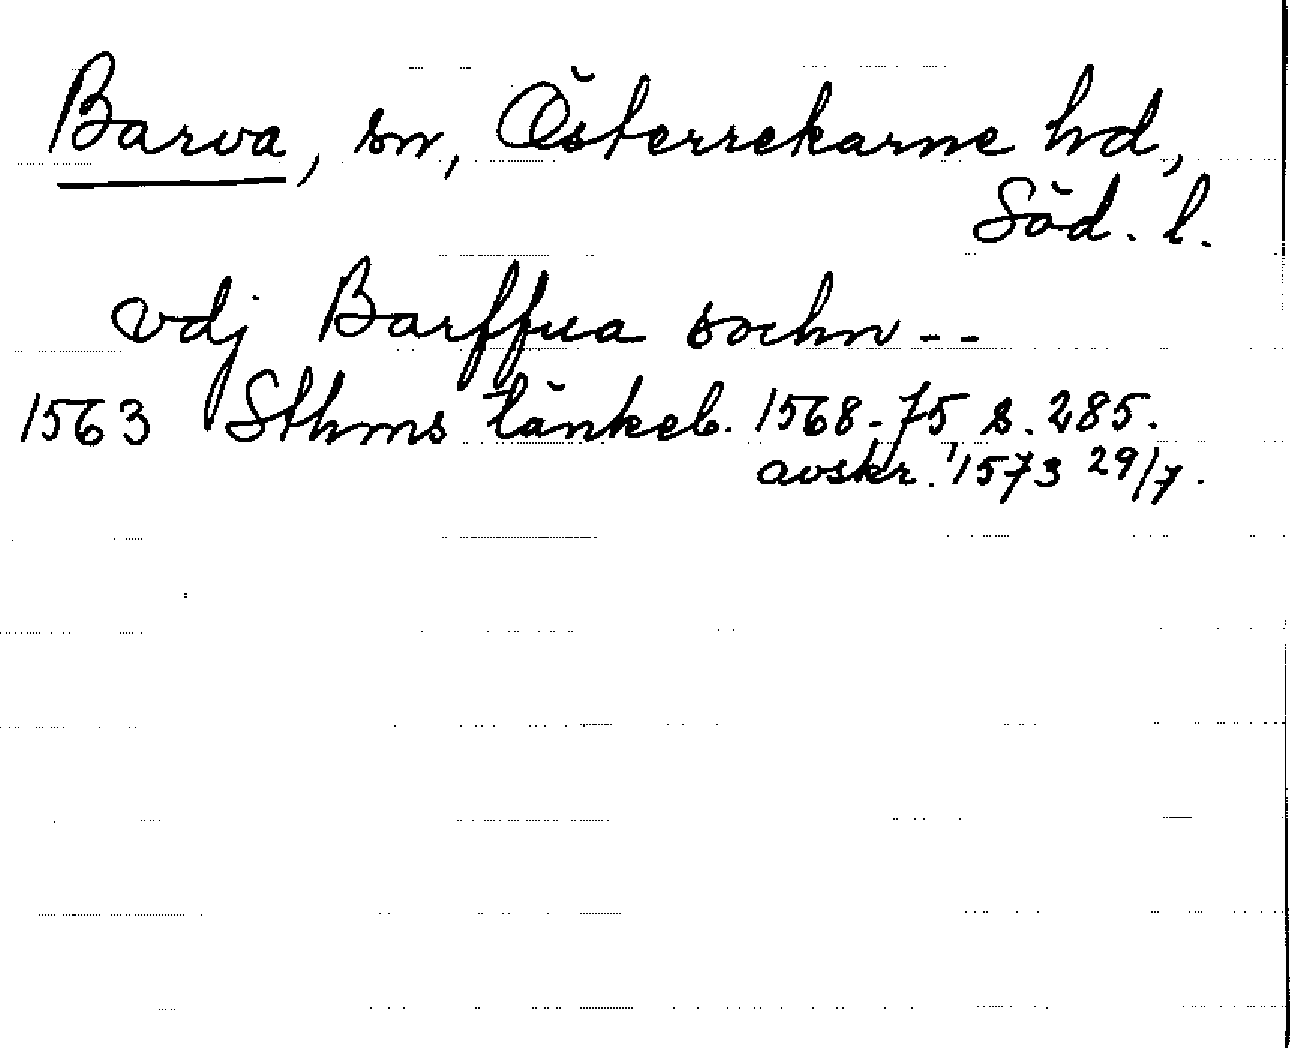 Barva, sn, Österrekarne hd,
Söd. l.
vdj Barffua sochn --
1563 Sthms tänkeb. 1568-75 s. 285.
avskr. 1573 29/7.